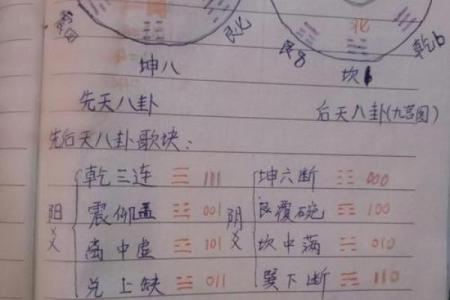 震四
艮七
坤八
北
艮8
坎1
乾6
先天八卦
后天八卦(九宫图)
先后天八卦歌块:
阳仪
乾三连 ☰ 111
震仰盂 ☳ 001
离中虚 ☲ 101
兑上缺 ☱ 011
阴仪
坤六断 ☷ 000
艮覆碗 ☶ 100
坎中满 ☵ 010
巽下断 ☴ 110